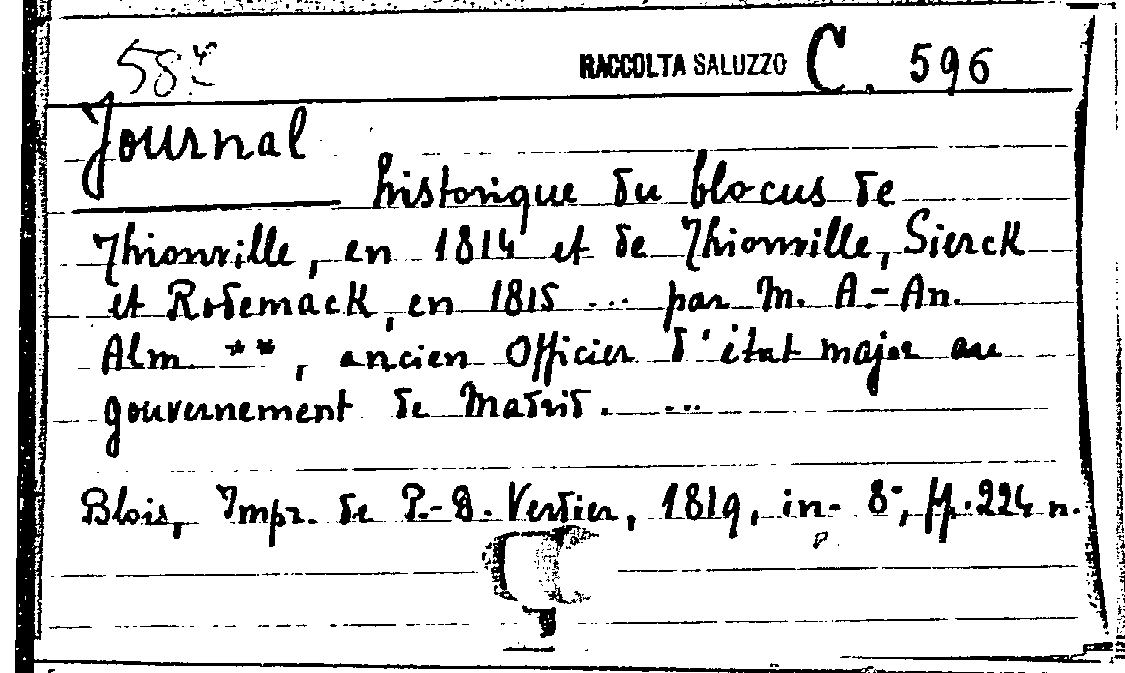 RACCOLTA SALUZZO C. 596
Journal
historique du blocus de
Thionville, en 1814 et de Thionville, Sierck
et Rodemack, en 1815 ... par M. A.-An.
Alm. **, ancien Officier d'état major au
gouvernement de Madrid. ...
Blois, Impr. de P.-D. Verdier, 1819, in-8°, pp. 224 n.